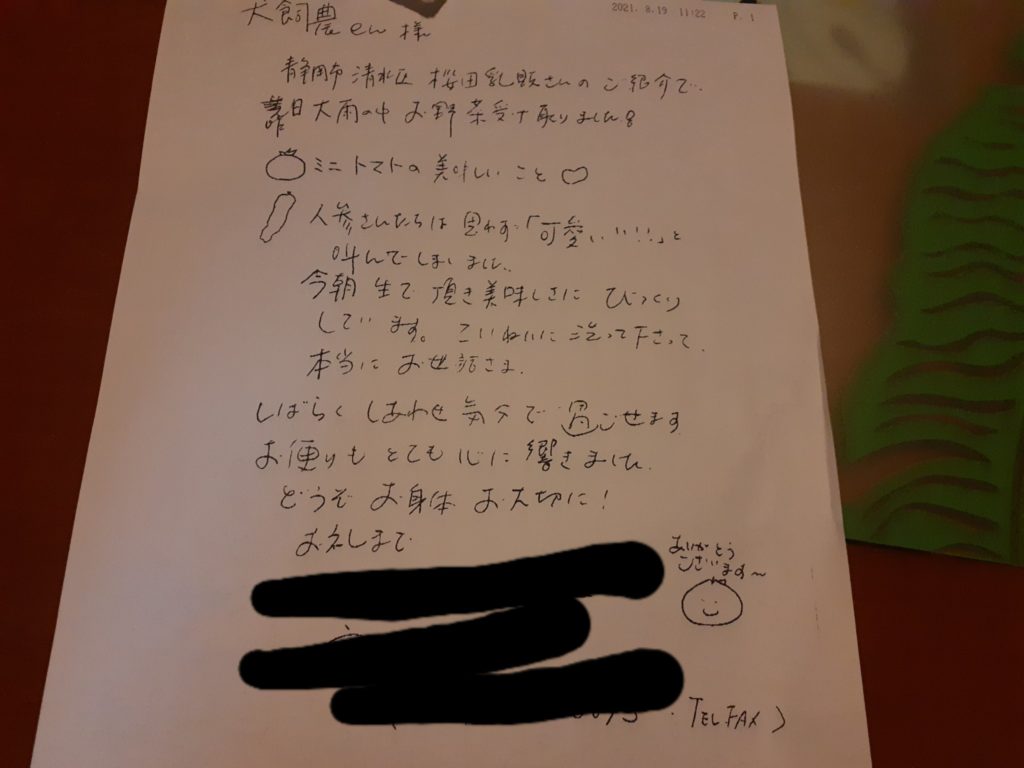 2021. 8.19 11:22 P. 1
犬飼農en 様
静岡市清水区 桜田乳販さんのご紹介で、
昨日大雨の中お野菜受け取りました。
ミニトマトの美味しいこと♡
人参さんたちは思わず「可愛いいい!!」と
叫んでしまいました。
今朝生で頂き美味しさにびっくり
しています。ていねいに洗って下さって、
本当にお世話さま。
しばらくしあわせ気分で過ごせます
お便りもとても心に響きました。
どうぞお身体お大切に!
お礼まで
ありがとう
ございます〜
・TEL FAX)